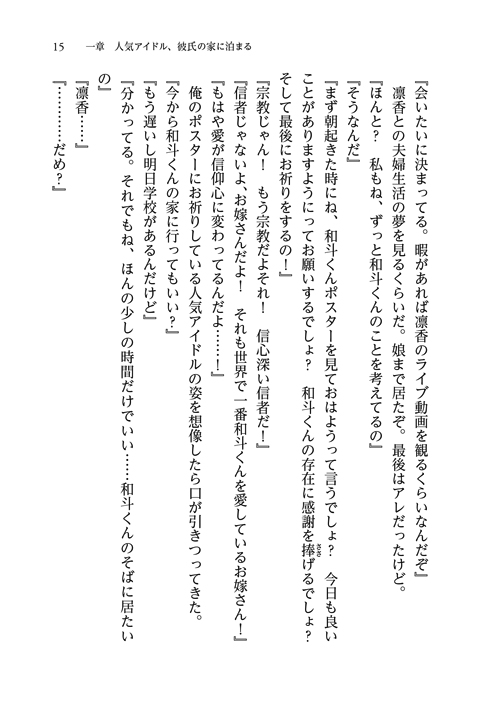 15　一章　人気アイドル、彼氏の家に泊まる
『会いたいに決まってる。暇があれば凛香のライブ動画を観るくらいなんだぞ』
凛香との夫婦生活の夢を見るくらいだ。娘まで居たぞ。最後はアレだったけど。
『ほんと？　私もね、ずっと和斗くんのことを考えてるの』
『そうなんだ』
『まず朝起きた時にね、和斗くんポスターを見ておはようって言うでしょ？　今日も良い
ことがありますようにってお願いするでしょ？　和斗くんの存在に感謝を捧げるでしょ？
ささ
そして最後にお祈りをするの！』
『宗教じゃん！　もう宗教だよそれ！　信心深い信者だ！』
『信者じゃないよ、お嫁さんだよ！　それも世界で一番和斗くんを愛しているお嫁さん！』
『もはや愛が信仰心に変わってるんだよ……！』
俺のポスターにお祈りしている人気アイドルの姿を想像したら口が引きつってきた。
『今から和斗くんの家に行ってもいい？』
『もう遅いし明日学校があるんだけど』
『分かってる。それでもね、ほんの少しの時間だけでいい……和斗くんのそばに居たい
の』
『凛香……』
『…………だめ？』